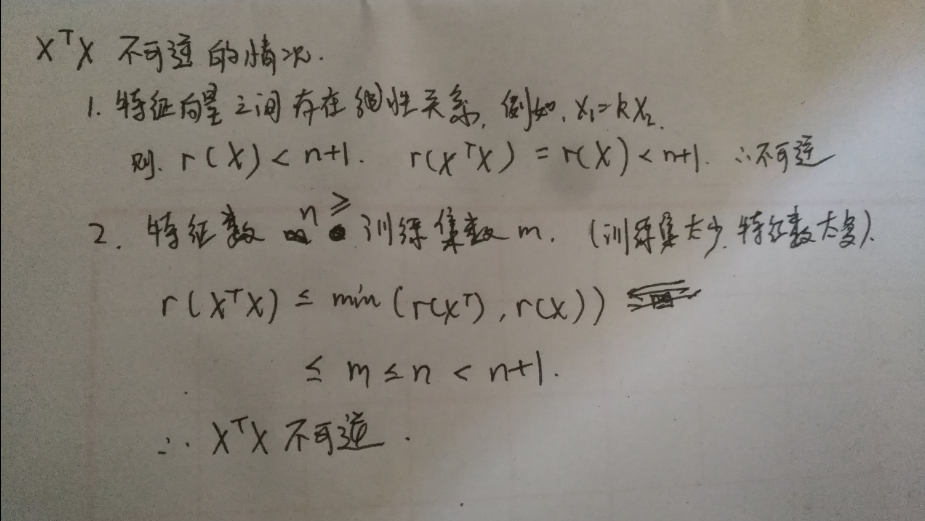 XᵀX 不可逆的情况.
1. 特征向量之间存在线性关系, 例如, x₁=kx₂.
则. r(X)<n+1. r(XᵀX)=r(X)<n+1. ∴不可逆
2. 特征数 n ≥ 训练集数 m. (训练集太少, 特征数太多).
r(XᵀX) ≤ min(r(Xᵀ), r(X))
≤ m ≤ n < n+1.
∴ XᵀX 不可逆.